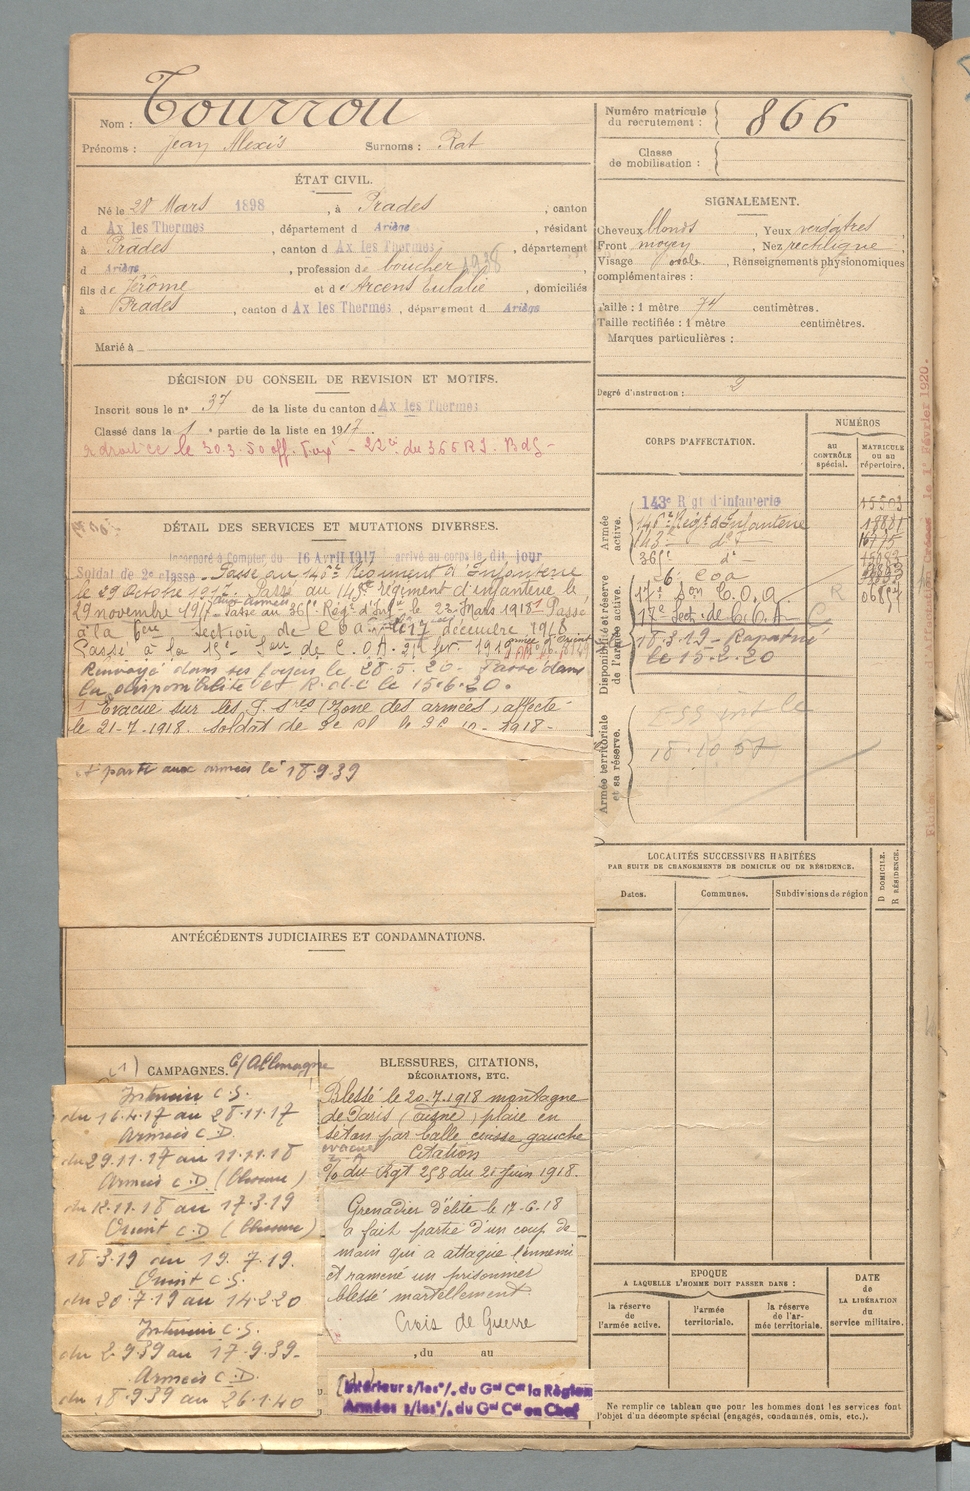 Nom : Tourrou
Prénoms : Jean Alexis Surnoms : Rat
Numéro matricule du recrutement : 866
Classe de mobilisation :
ÉTAT CIVIL.
Né le 28 Mars 1898, à Prades, canton
d Ax les Thermes, département d Ariège, résidant
à Prades, canton d Ax les Thermes, département
d Ariège, profession de boucher 1936
fils de Jérôme et d'Arcens Eulalie, domiciliés
à Prades, canton d Ax les Thermes, département d Ariège
Marié à
DÉCISION DU CONSEIL DE REVISION ET MOTIFS.
Inscrit sous le n° 37 de la liste du canton d Ax les Thermes
Classé dans la 1 e partie de la liste en 1917.
le 30.3.50 off. - 22e du 366 R.I.
DÉTAIL DES SERVICES ET MUTATIONS DIVERSES.
Incorporé à compter du 16 Avril 1917 arrivé au corps le dit jour
Soldat de 2e classe. Passé au 146e Régiment d'Infanterie
le 29 Octobre 1917. Passé au 143e régiment d'infanterie le
29 novembre 1917 aux armées Passé au 36 Rég. d'Inf. le 23 Mars 1918 Passé
à la 6ème Section de C O A le 17 décembre 1918
Passé à la 15e de C.O.A. 21 fév. 1919 armée d'Orient
Renvoyé dans ses foyers le 28-5-20. Passé dans
la disponibilité et R.d.l. le 15.6.20.
1 Evacué sur les (Zone des armées) affecté
le 21-7-1918. Soldat de 1918-
parti aux armées le 18.9.39
ANTÉCÉDENTS JUDICIAIRES ET CONDAMNATIONS.
(1) CAMPAGNES. C/Allemagne
Intérieur C.S.
du 16.4.17 au 28.11.17
Armées C.D.
du 29.11.17 au 11.11.18
Armées C.D. (Blessure)
du 12.11.18 au 17.3.19
Orient C.D. (Blessure)
18.3.19 au 19.7.19.
Orient C.S.
du 20.7.19 au 14.2.20
Intérieur C.S.
du 2.9.39 au 17.9.39-
Armées C.D.
du 18.9.39 au 26.1.40
BLESSURES, CITATIONS,
DÉCORATIONS, ETC.
Blessé le 20.7.1918 montagne
de Paris (aisne) plaie en
séton par balle cuisse gauche
évacué
Citation
O/ du Rgt 258 du 21 Juin 1918.
Grenadier d'élite le 17-6-18
a fait partie d'un coup de
main qui a attaqué l'ennemi
et ramené un prisonnier
blessé mortellement
Croix de Guerre
, du au
Intérieur s/les °/. du Gal Ct la Région
Armées s/les °/. du Gal Ct en Chef
SIGNALEMENT.
Cheveux blonds, Yeux verdatres,
Front moyen, Nez rectiligne
Visage ovale, Renseignements physionomiques
complémentaires :
Taille : 1 mètre 74 centimètres.
Taille rectifiée : 1 mètre centimètres.
Marques particulières :
Degré d'instruction : 2
CORPS D'AFFECTATION.
NUMÉROS
au CONTRÔLE spécial.
MATRICULE ou au répertoire.
Armée active.
143e Rgt d'Infanterie 15503
146e Régt d'Infanterie 18881
143 do
36 do
6e COA
Disponibilité et réserve de l'armée active.
17e Son C.O.A. R
17e Sect. de C.O.A. C
18.3.19 - Rapatrié
le 15.2.20
Armée territoriale et sa réserve.
18.10.57
LOCALITÉS SUCCESSIVES HABITÉES
PAR SUITE DE CHANGEMENTS DE DOMICILE OU DE RÉSIDENCE.
Dates.
Communes.
Subdivisions de région
D DOMICILE.
R RÉSIDENCE.
EPOQUE
A LAQUELLE L'HOMME DOIT PASSER DANS :
la réserve de l'armée active.
l'armée territoriale.
la réserve de l'armée territoriale.
DATE
de
LA LIBÉRATION
du
service militaire.
Ne remplir ce tableau que pour les hommes dont les services font
l'objet d'un décompte spécial (engagés, condamnés, omis, etc.).
le 1er Février 1920.